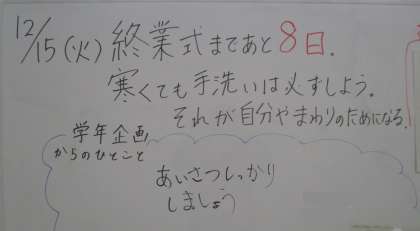 12/15(火) 終業式まであと8日.
寒くても手洗いは必ずしよう。
それが自分やまわりのためになる.
学年企画
からのひとこと
あいさつしっかり
しましょう